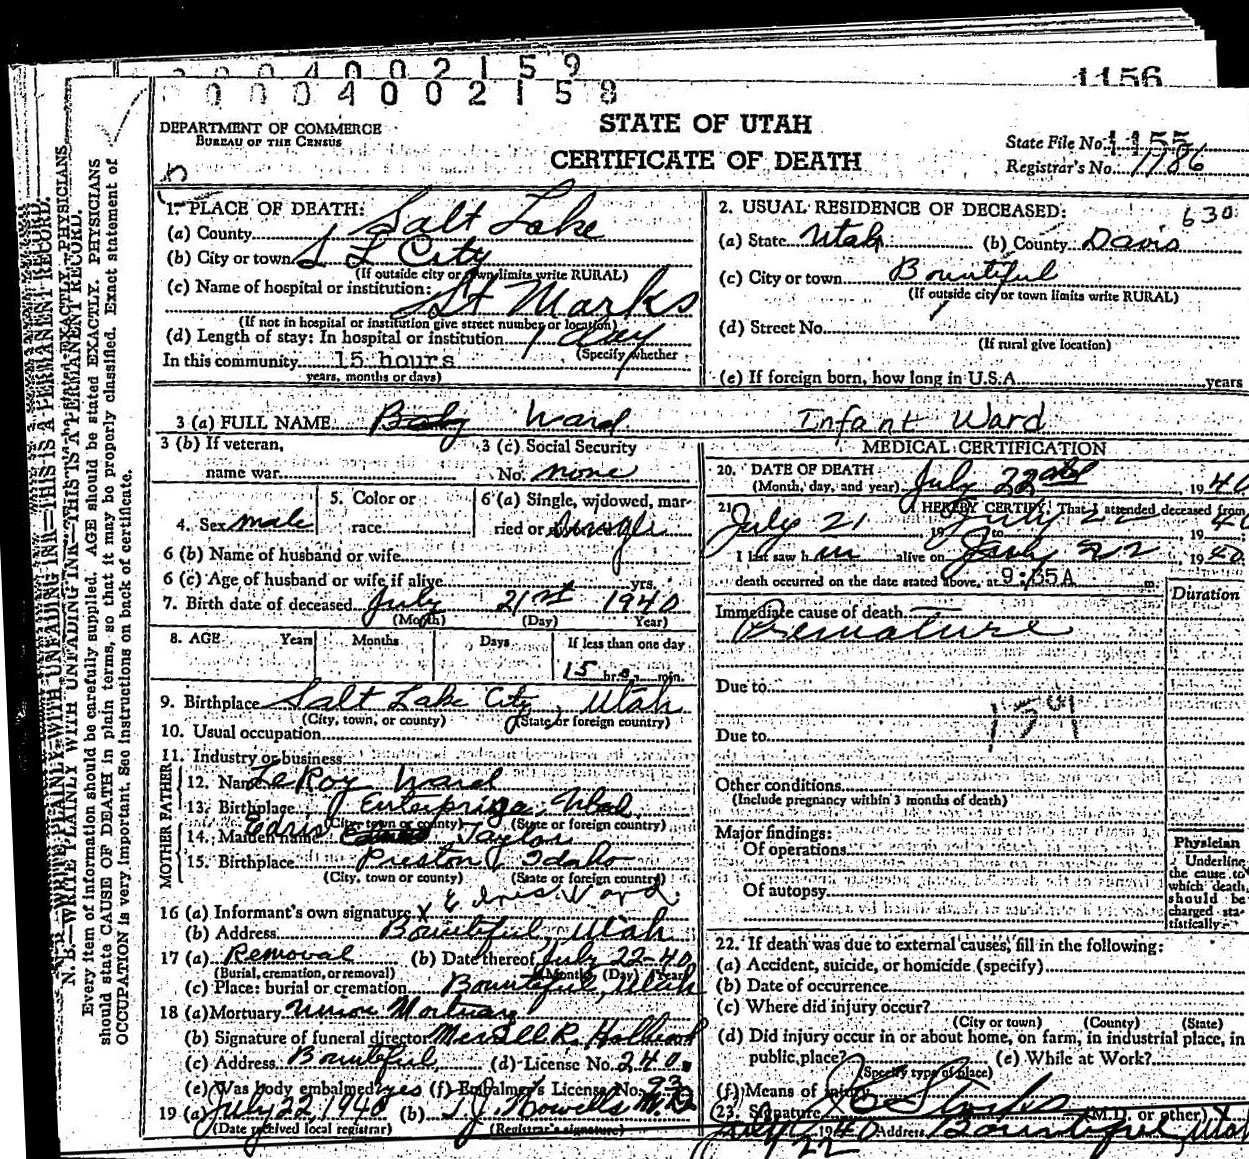 0 0 0 4 0 0 2 1 5 9
0 0 0 4 0 0 2 1 5 8
1156
DEPARTMENT OF COMMERCE
BUREAU OF THE CENSUS
STATE OF UTAH
CERTIFICATE OF DEATH
State File No. 1155
Registrar's No. 1186
N. B.—WRITE PLAINLY WITH UNFADING INK—THIS IS A PERMANENT RECORD.
Every item of information should be carefully supplied. AGE should be stated EXACTLY. PHYSICIANS
should state CAUSE OF DEATH in plain terms, so that it may be properly classified. Exact statement of
OCCUPATION is very important. See instructions on back of certificate.
1. PLACE OF DEATH:
(a) County Salt Lake
(b) City or town S L City
(If outside city or town limits write RURAL)
(c) Name of hospital or institution:
St Marks
(If not in hospital or institution give street number or location)
(d) Length of stay: In hospital or institution 1 day
(Specify whether
In this community 15 hours
years, months or days)
2. USUAL RESIDENCE OF DECEASED: 630
(a) State Utah (b) County Davis
(c) City or town Bountiful
(If outside city or town limits write RURAL)
(d) Street No.
(If rural give location)
(e) If foreign born, how long in U.S.A. years
3 (a) FULL NAME Baby Ward Infant Ward
3 (b) If veteran,
name war
3 (c) Social Security
No. none
4. Sex male
5. Color or
race
6 (a) Single, widowed, mar-
ried or divorced single
6 (b) Name of husband or wife
6 (c) Age of husband or wife if alive yrs.
7. Birth date of deceased July 21st 1940
(Month) (Day) Year)
8. AGE Years Months Days If less than one day
15 hrs. min.
9. Birthplace Salt Lake City, Utah
(City, town, or county) (State or foreign country)
10. Usual occupation
11. Industry or business
FATHER
12. Name LeRoy Ward
13. Birthplace Enterprise, Utah
(City, town or county) (State or foreign country)
MOTHER
14. Maiden name Edris Taylor
15. Birthplace Preston, Idaho
(City, town or county) (State or foreign country)
16 (a) Informant's own signature X Ward
(b) Address Bountiful, Utah
17 (a) Removal (b) Date thereof July 22-40
(Burial, cremation, or removal) (Month) (Day) (Year)
(c) Place: burial or cremation Bountiful, Utah
18 (a) Mortuary Union Mortuary
(b) Signature of funeral director Merrell R. Holbrook
(c) Address Bountiful, (d) License No. 240.
(e) Was body embalmed? yes (f) Embalmer's License No. 93
19 (a) July 22, 1940 (b) T. J. Howells M.D.
(Date received local registrar) (Registrar's signature)
MEDICAL CERTIFICATION
20. DATE OF DEATH
(Month, day, and year) July 22nd, 1940
21. I HEREBY CERTIFY, That I attended deceased from
July 21 19 to July 22 1940
I last saw him alive on July 22, 1940.
death occurred on the date stated above, at 9:35A m.
Duration
Immediate cause of death
Premature
Due to
159
Due to
Other conditions
(Include pregnancy within 3 months of death)
Major findings:
Of operations
Of autopsy
Physician
Underline
the cause to
which death
should be
charged sta-
tistically
22. If death was due to external causes, fill in the following:
(a) Accident, suicide, or homicide (specify)
(b) Date of occurrence
(c) Where did injury occur?
(City or town) (County) (State)
(d) Did injury occur in or about home, on farm, in industrial place, in
public place? (e) While at Work?
(Specify type of place)
(f) Means of injury
23. Signature (M.D. or other)
July 22 1940 Address Bountiful, Utah